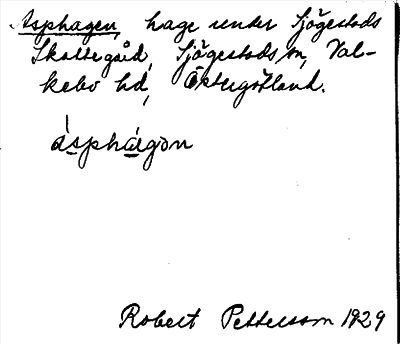 Asphagen, hage under Sjögestads
Skattegård, Sjögestads sn, Val-
kebo hd, Östergötland.
áspha̲gon
Robert Pettersson 1929